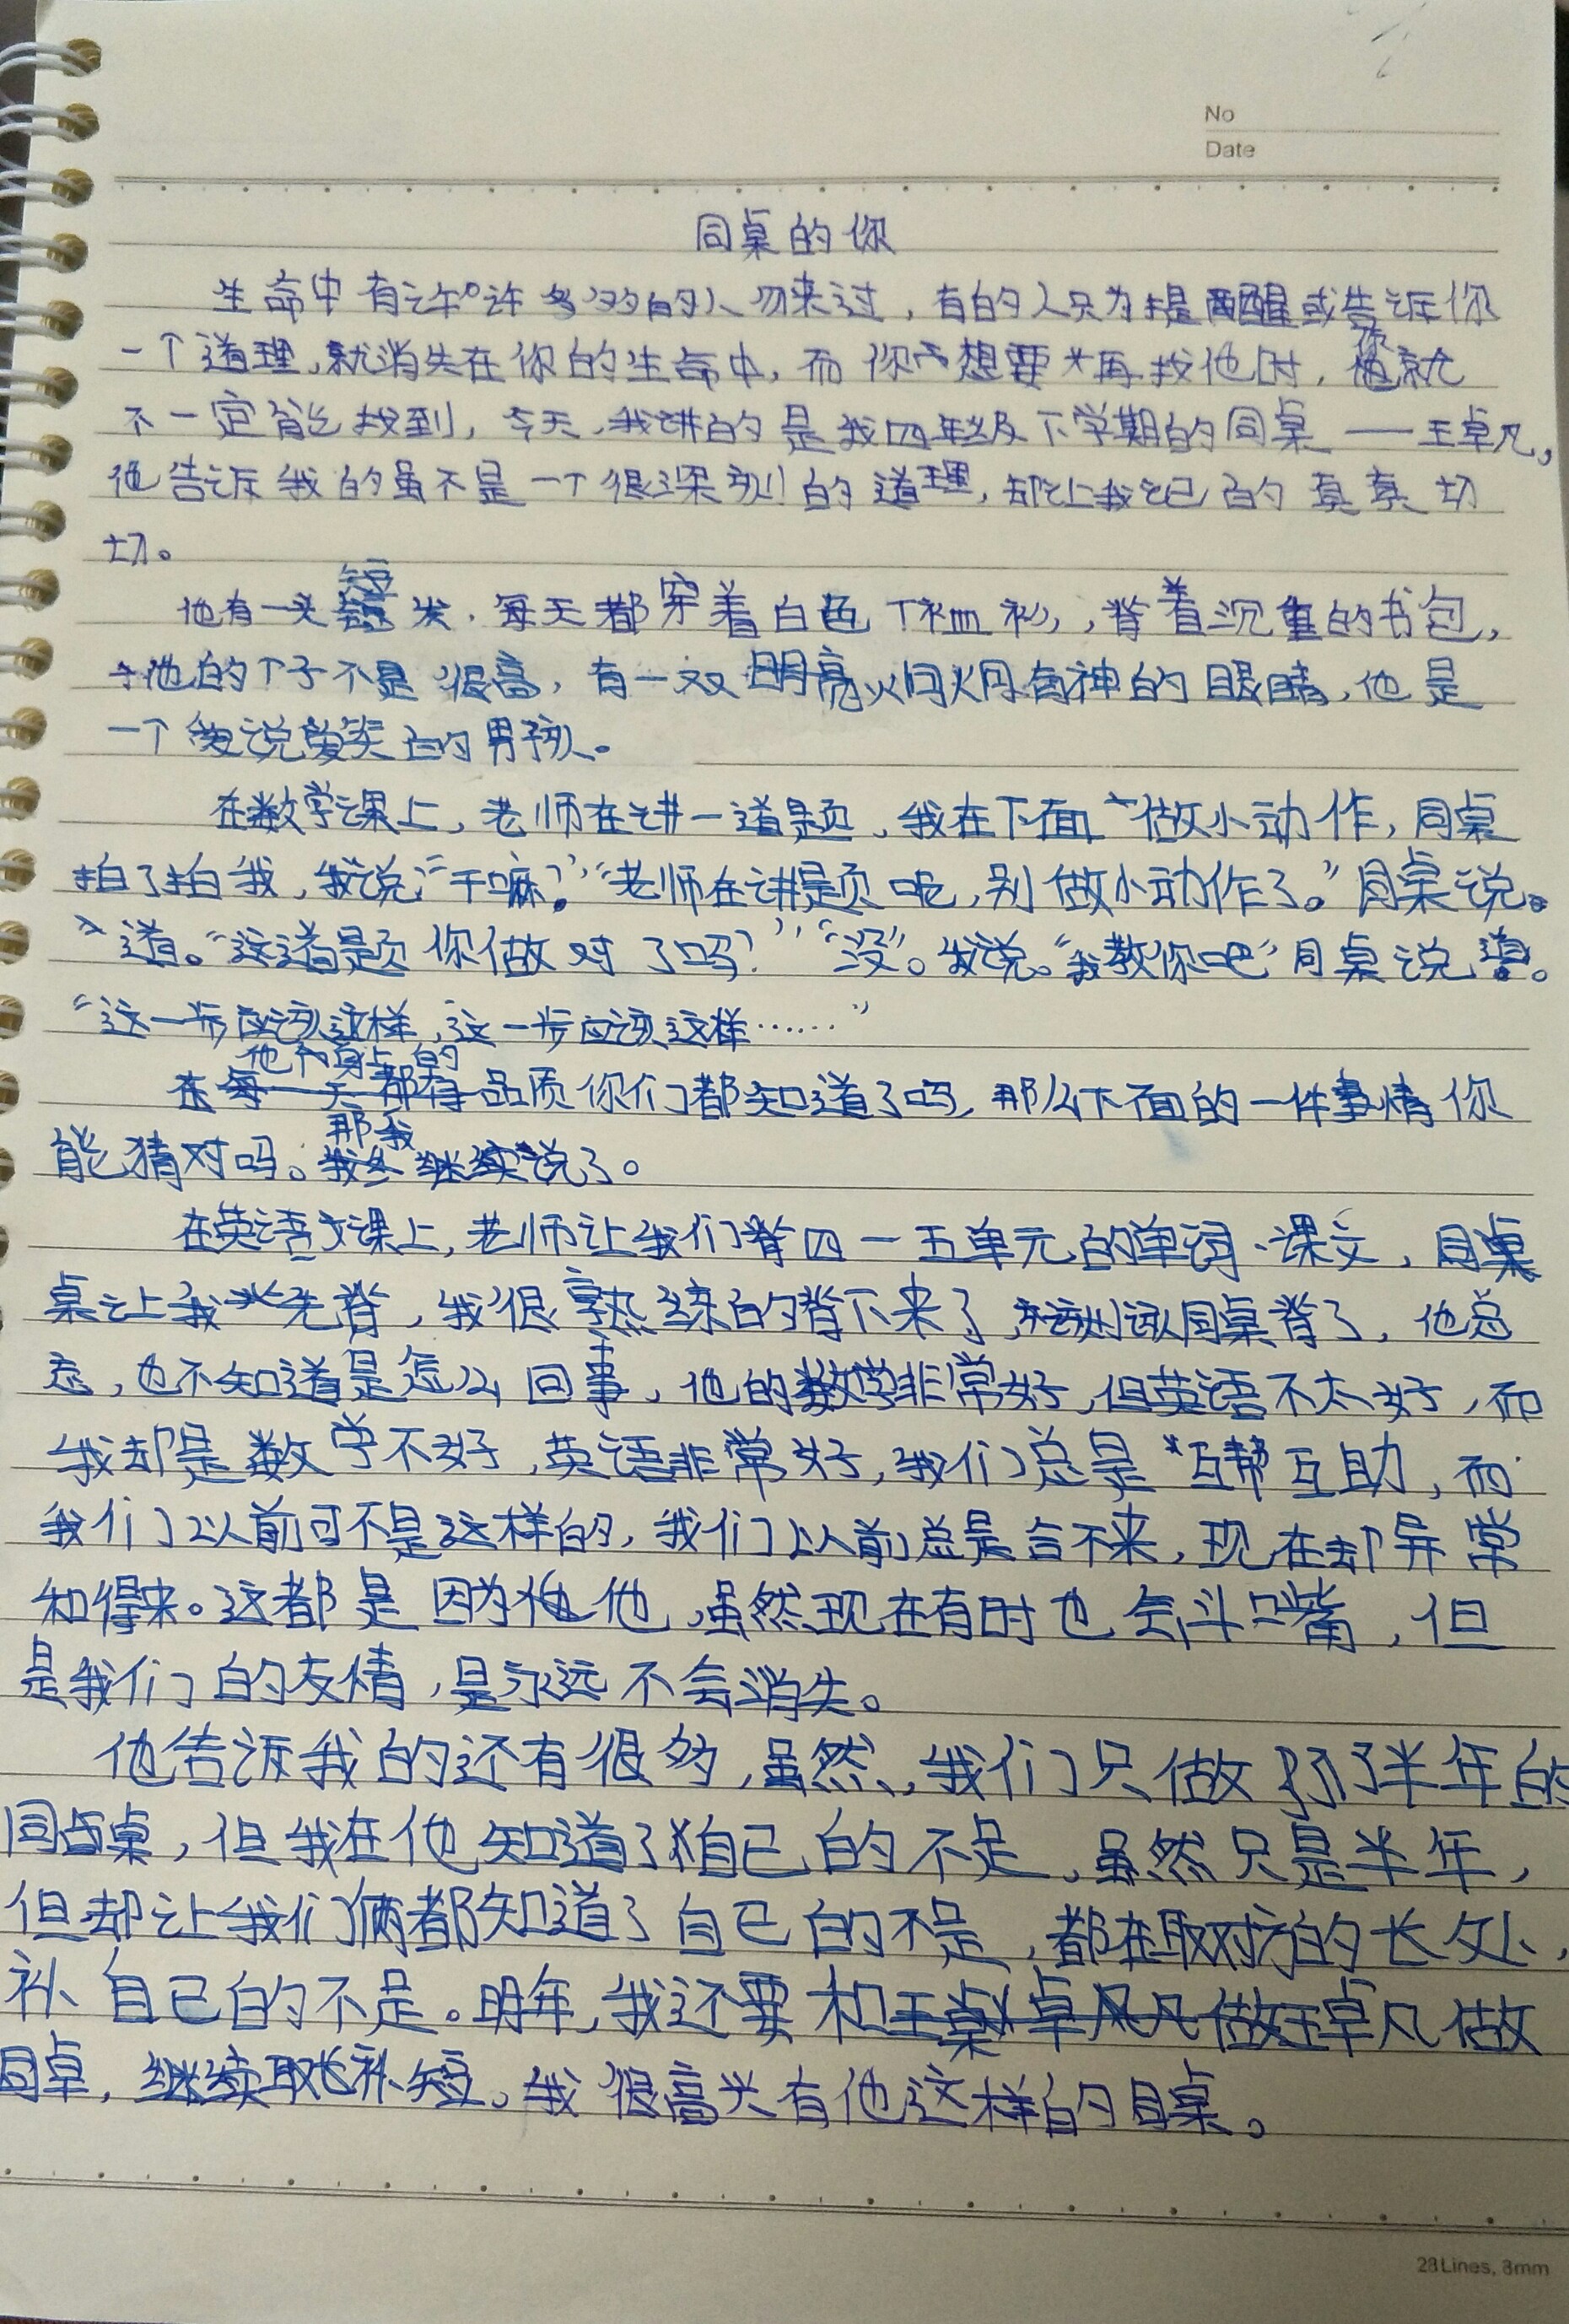 No
Date
同桌的你
生命中有许许多多的人匆来过，有的人只为提醒或告诉你
一个道理，就消失在你的生命中，而你想要再找他时，你就
不一定能找到，今天，我讲的是我四年级下学期的同桌——王卓凡，
他告诉我的虽不是一个很深刻的道理，却让我记的真真切
切。
他有一头短发，每天都穿着白色T恤衫，背着沉重的书包，
他的个子不是很高，有一双明亮炯炯有神的眼睛，他是
一个爱说爱笑的男孩。
在数学课上，老师在讲一道题，我在下面做小动作，同桌
拍了拍我，我说：“干嘛？”“老师在讲题呢，别做小动作了。”同桌说。
道。“这道题你做对了吗？”“没”。我说。“我教你吧”同桌说道。
“这一步应该这样，这一步应该这样……”
他身上的品质你们都知道了吗，那么下面的一件事情你
能猜对吗。那我继续说了。
在英语课上，老师让我们背四—五单元的单词、课文，同桌
桌让我先背，我很熟练的背下来了，同桌背了，他总
忘，也不知道是怎么回事，他的数学非常好，但英语不太好，而
我却是数学不好，英语非常好，我们总是互帮互助，而
我们以前可不是这样的，我们以前总是合不来，现在却异常
和得来。这都是因为他，虽然现在有时也会斗嘴，但
是我们的友情，是永远不会消失。
他告诉我的还有很多，虽然，我们只做了半年的
同桌，但我在他知道了自己的不足，虽然只是半年，
但却让我们俩都知道了自己的不足，都在取对方的长处，
补自己的不足。明年，我还要和王卓凡做
同卓，继续取长补短。我很高兴有他这样的同桌。
28Lines, 8mm